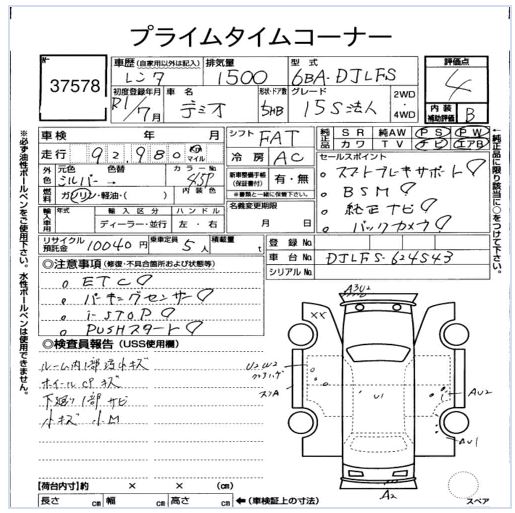 プライムタイムコーナー
No. 37578
車歴 (自家用以外は記入) レンタ
排気量 1500
型式 6BA-DJLFS
評価点 4
初度登録年月 R1/7月
車名 デミオ
形状・ドア数 5HB
グレード 15S法人
2WD・4WD
内装補助評価 B
車検 年 月
シフト FAT
純正品 SR 純AW PS PW
カワ TV ナビ エアB
走行 92,980 km マイル
冷房 AC
セールスポイント
外色 元色 シルバー 色替 →
カラーNo. 45P
内装色
新車整備手帳(保証書付) 有・無
※書類と一緒に保管下さい。
スマートブレーキサポート
BSM
純正ナビ
バックカメラ
燃料 ガソリン・軽油・( )
名義変更期限 月 日
輸入車用 年式 輸入区分 ディーラー・並行 ハンドル 左・右
リサイクル預託金 10040円
乗車定員 5人
積載量 t
登録No.
車台No. DJLFS-624543
シリアルNo.
◎注意事項 (修復・不具合箇所および状態等)
ETC
パーキングセンサー
i-STOP
PUSHスタート
◎検査員報告 (USS使用欄)
ルーム内1部汚小キズ
ホイールCP キズ
下廻り1部サビ
小キズ 小凹
A3U2
XX
U2W2
スリA
U1
AU2
AU1
A2
スペア
【荷台内寸】約 × × (cm)
長さ cm 幅 cm 高さ cm ←(車検証上の寸法)
※必ず油性ボールペンをご使用下さい。水性ボールペンは使用できません。
←純正品に限り該当に○をつけて下さい。